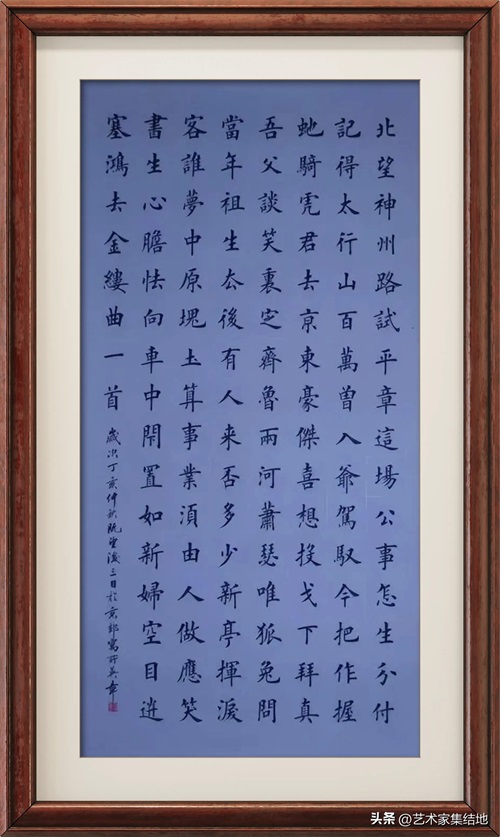 北望神州路試平章這場公事怎生分付
記得太行山百萬曽入爺駕馭今把作握
虵騎虎君去亰東豪傑喜想投戈下拜真
吾父談笑裏定齊魯兩河蕭瑟唯狐兔問
當年祖生去後有人来否多少新亭揮淚
客誰夢中原塊土算事業湏由人做應笑
書生心膽怯向車中閇置如新婦空目送
塞鴻去金縷曲一首
歲次丁亥仲秋既望後三日於京郊寓所
头条 @艺术家集结地